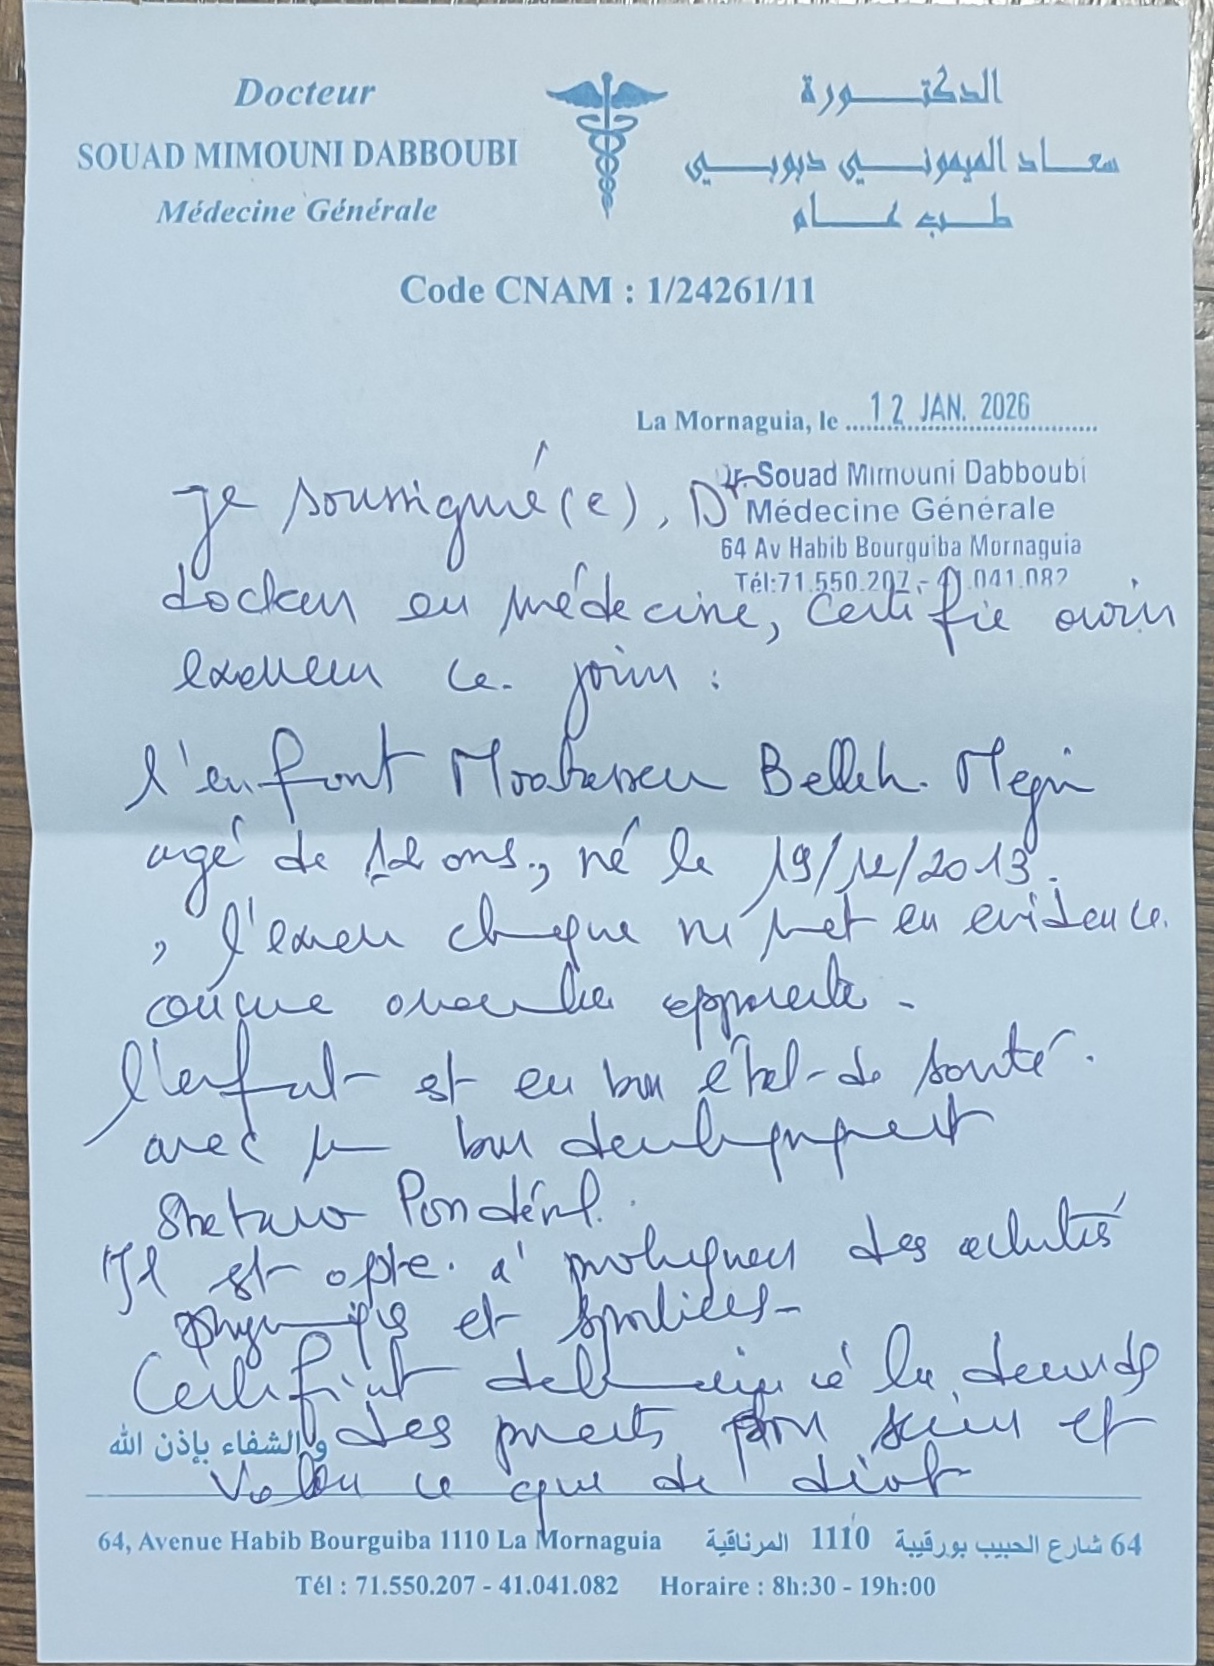 Docteur
SOUAD MIMOUNI DABBOUBI
Médecine Générale
الدكتورة
سعاد الميموني دبوبي
طب عام
Code CNAM : 1/24261/11
La Mornaguia, le 12 JAN. 2026
Dr. Souad Mimouni Dabboubi
Médecine Générale
64 Av Habib Bourguiba Mornaguia
Tél:71.550.207 - 41.041.082
Je soussigné(e), Dr
docteur en médecine, certifie avoir
examiner ce jour :
l'enfant Moatassem Belleh. Mejri
agé de 12 ans, né le 19/12/2013.
, l'examen clinique ne met en evidence
aucune anomalie apparente.
L'enfant est en bon état de santé.
avec un bon developpement
Staturo Pondéral.
Il est apte à pratiquer des activités
physiques et sportives
Certificat délivré à la demande
des parents pour servir et
valoir ce que de droit
والشفاء بإذن الله
64, Avenue Habib Bourguiba 1110 La Mornaguia
64 شارع الحبيب بورقيبة 1110 المرناقية
Tél : 71.550.207 - 41.041.082 Horaire : 8h:30 - 19h:00